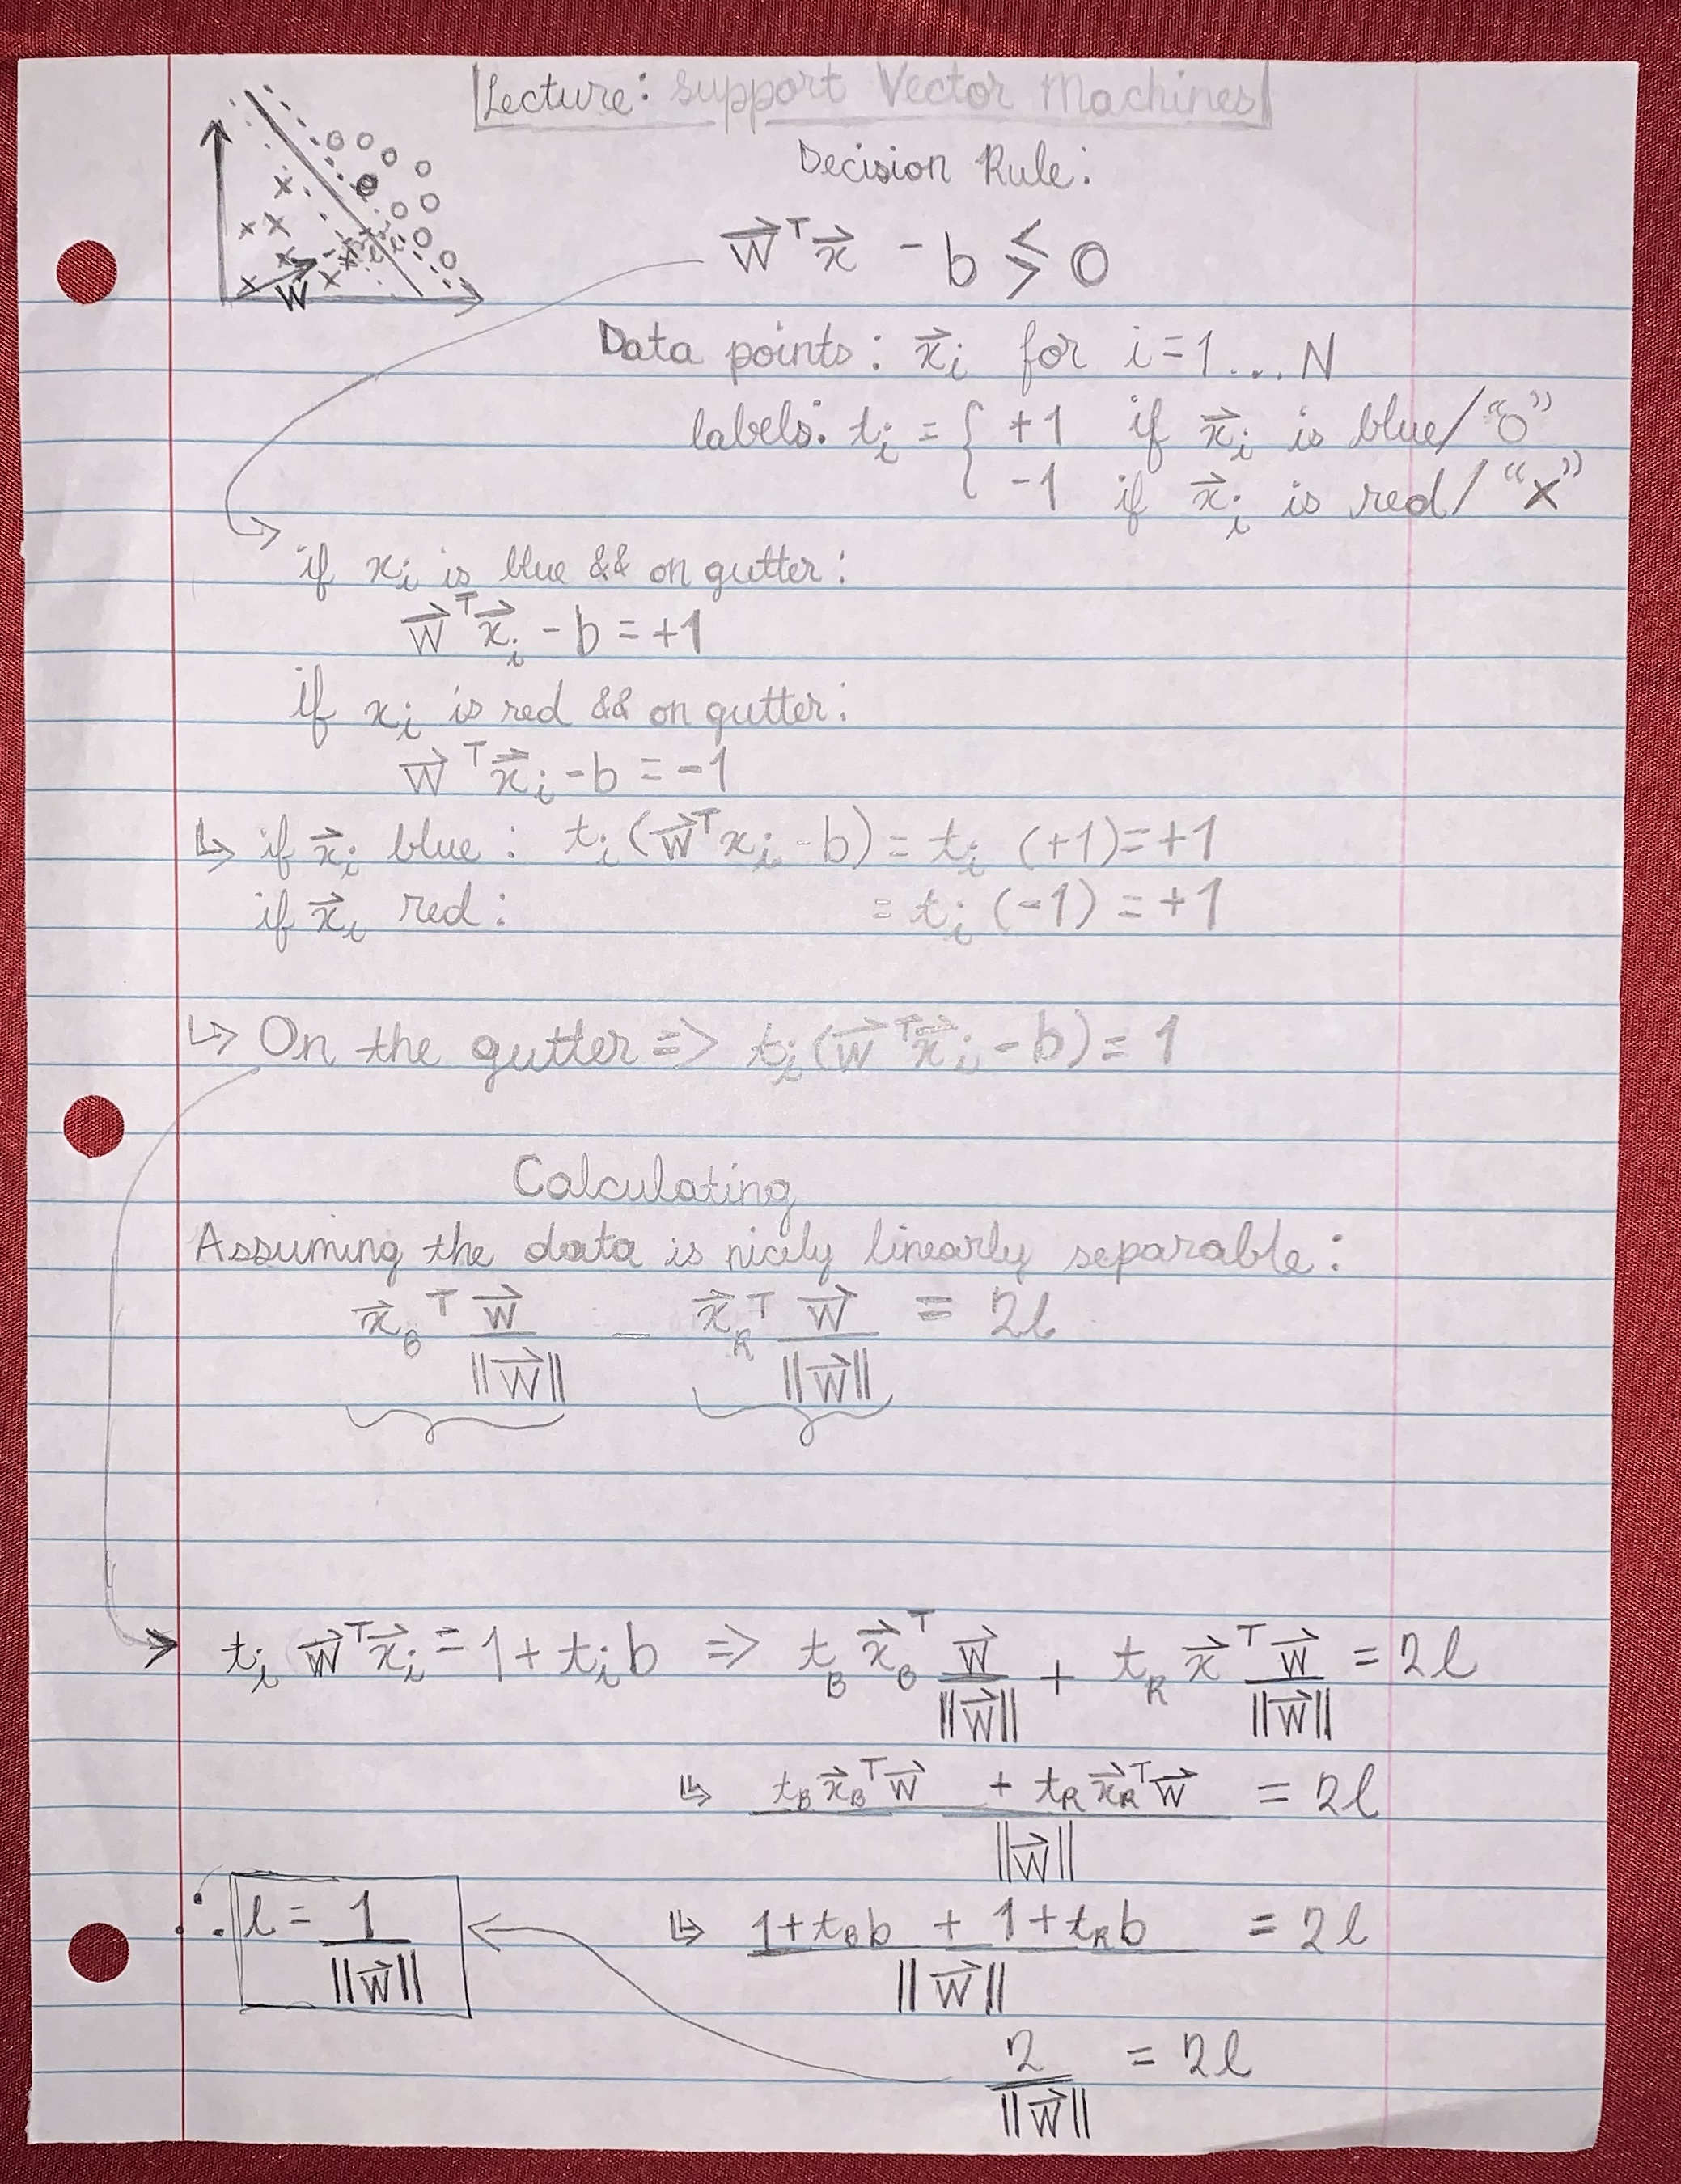 Lecture: Support Vector Machines
Decision Rule:
w⃗ᵀx⃗ - b ≶ 0
W
Data points: x⃗ᵢ for i=1...N
labels: tᵢ = { +1 if x⃗ᵢ is blue/"o"
-1 if x⃗ᵢ is red/"x"
↳ if xᵢ is blue && on gutter:
w⃗ᵀx⃗ᵢ - b = +1
if xᵢ is red && on gutter:
w⃗ᵀx⃗ᵢ - b = -1
↳ if x⃗ᵢ blue: tᵢ(w⃗ᵀxᵢ - b) = tᵢ (+1) = +1
if x⃗ᵢ red: = tᵢ (-1) = +1
↳ On the gutter => tᵢ(w⃗ᵀx⃗ᵢ - b) = 1
Calculating
Assuming the data is nicely linearly separable:
x⃗_Bᵀ w⃗/||w⃗|| - x⃗_Rᵀ w⃗/||w⃗|| = 2l
→ tᵢ w⃗ᵀx⃗ᵢ = 1 + tᵢb => t_B x⃗_Bᵀ w⃗/||w⃗|| + t_R x⃗ᵀ w⃗/||w⃗|| = 2l
↳ (t_B x⃗_Bᵀw⃗ + t_R x⃗_Rᵀw⃗)/||w⃗|| = 2l
↳ (1+t_Bb + 1+t_Rb)/||w⃗|| = 2l
∴ l = 1/||w⃗||
2/||w⃗|| = 2l